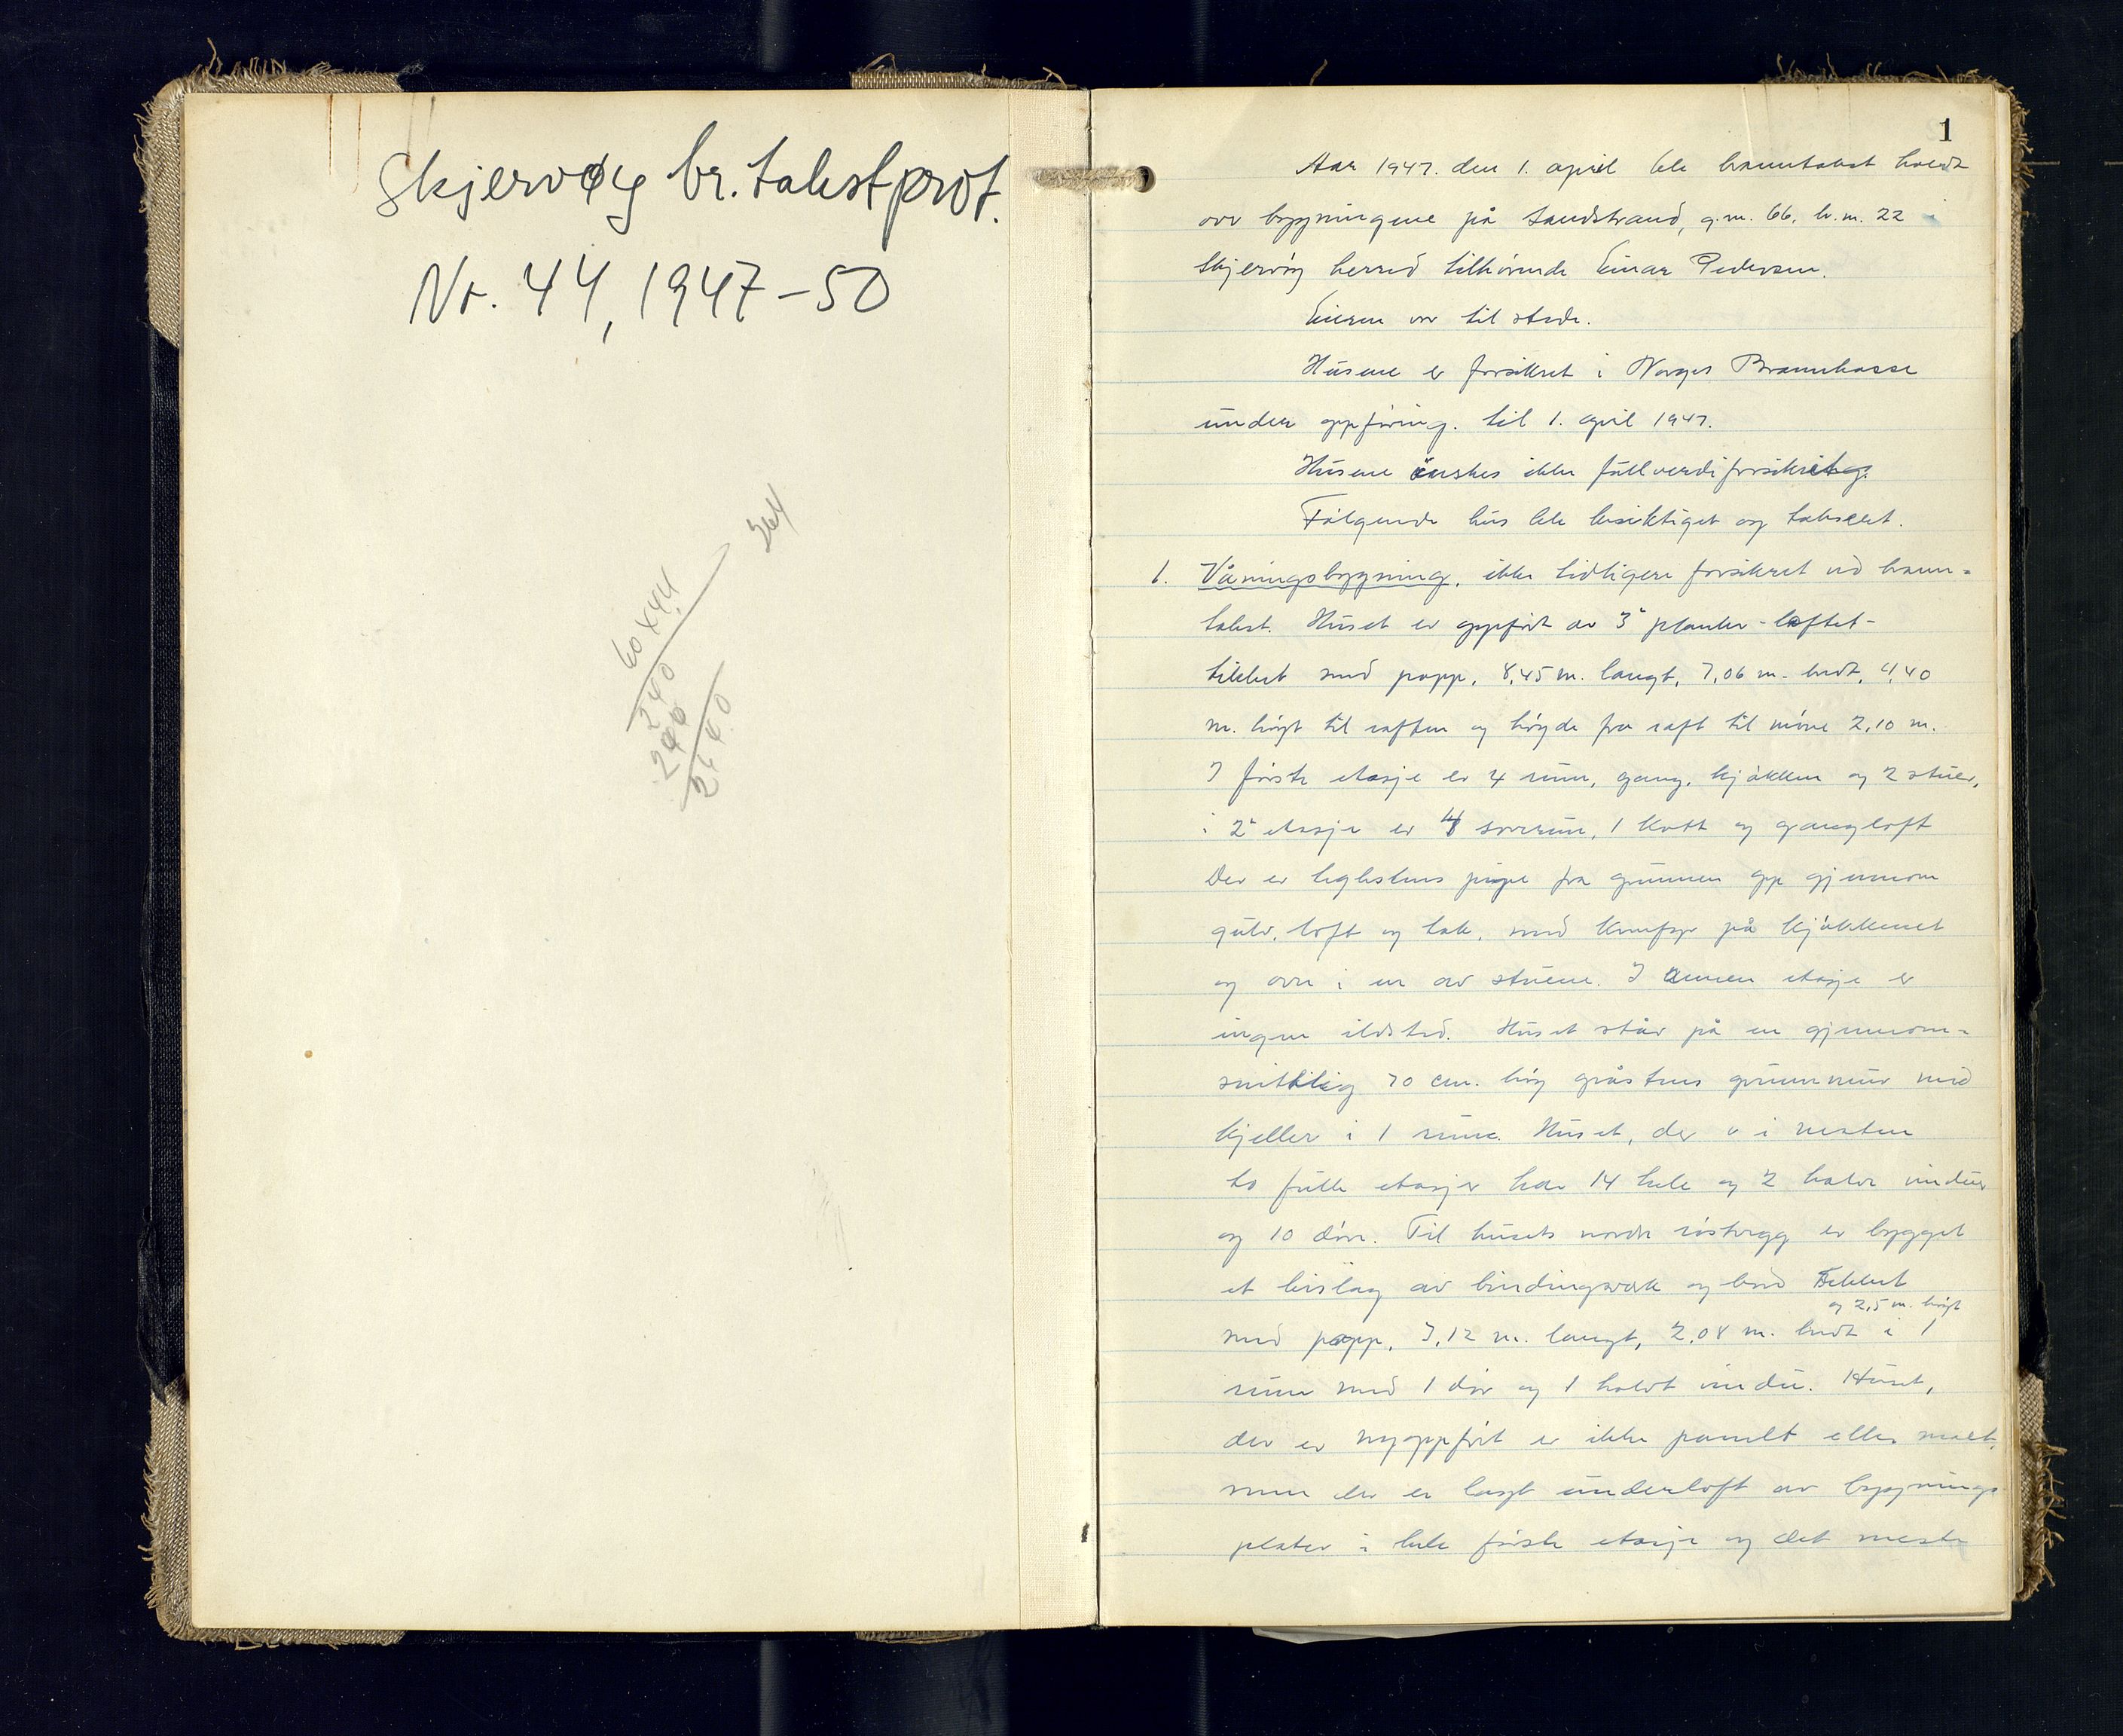 Skjervøy br. takstprot.
Nr. 44, 1947-50
264
60 x 44
240
240
2640
1
Aar 1947. den 1. april ble branntakst holdt
over bygningene på Sandstrand, g.nr. 66, br.nr. 22 i
Skjervøy herred tilhørende Einar Pedersen.
Eieren var til stede.
Husene er forsikret i Norges Brannkasse
under oppføring. til 1. april 1947.
Husene ønskes ikke fullverdiforsikret.
Følgende hus ble besiktiget og taksert.
1. Våningsbygning, ikke tidligere forsikret ved brann-
takst. Huset er oppført av 3" planker - laftet -
tekket med papp, 8,45 m. langt, 7,06 m. bredt, 4,40
m. høyt til raften og høyde fra raft til møne 2,10 m.
I første etasje er 4 rum, gang, kjøkken og 2 stuer,
i 2. etasje er 4 soverum, 1 kott og gangloft
Der er teglstens pipe fra grunnen opp gjennom
gulv, loft og tak, med komfyr på kjøkkenet
og ovn i en av stuene. I annen etasje er
ingen ildsted. Huset står på en gjennom-
snittlig 70 cm. høy gråstens grunnmur med
kjeller i 1 rum. Huset, der er i nesten
to fulle etasjer har 14 hele og 2 halve vinduer
og 10 dører. Til husets nordre røstvegg er bygget
et bislag av bindingsverk og bord tekket
og 2,5 m. høyt
med papp, 3,12 m. langt, 2,08 m. bredt i 1
rum med 1 dør og 1 halvt vindu. Huset,
der er nyoppført er ikke panelt eller malt,
men der er lagt underloft av bygnings
plater i hele første etasje og det meste